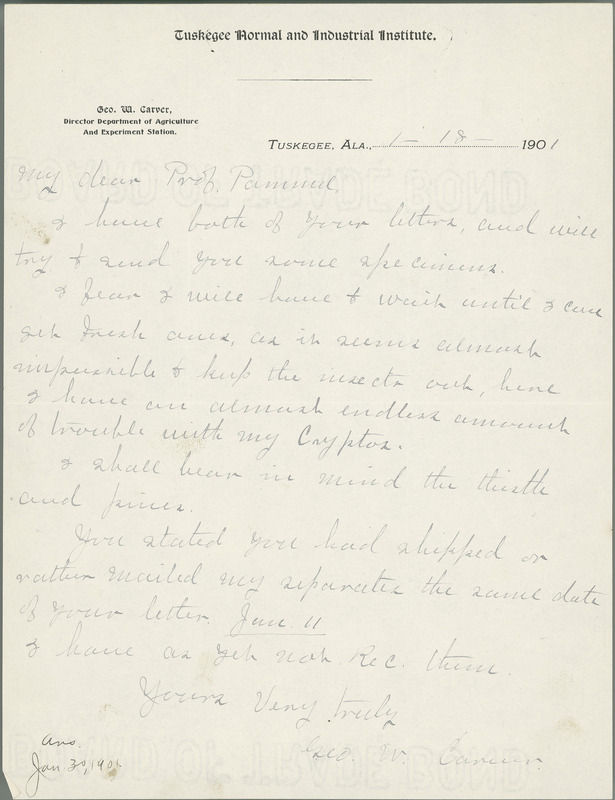 Tuskegee Normal and Industrial Institute.
Geo. W. Carver,
Director Department of Agriculture
And Experiment Station.
Tuskegee, Ala., 1 - 18 - 1901
My dear Prof. Pammel,
I have both of your letters, and will
try to send you some specimens.
I fear I will have to wait until I can
get fresh ones, as it seems almost
impossible to keep the insects out, here
I have an almost endless amount
of trouble with my Cryptos.
I shall bear in mind the thistle
and pines.
You stated you had shipped or
rather mailed my separates the same date
of your letter. Jan 11
I have as yet not Rec. them.
Yours Very truly
Geo. W. Carver.
Ans.
Jan 30, 1901